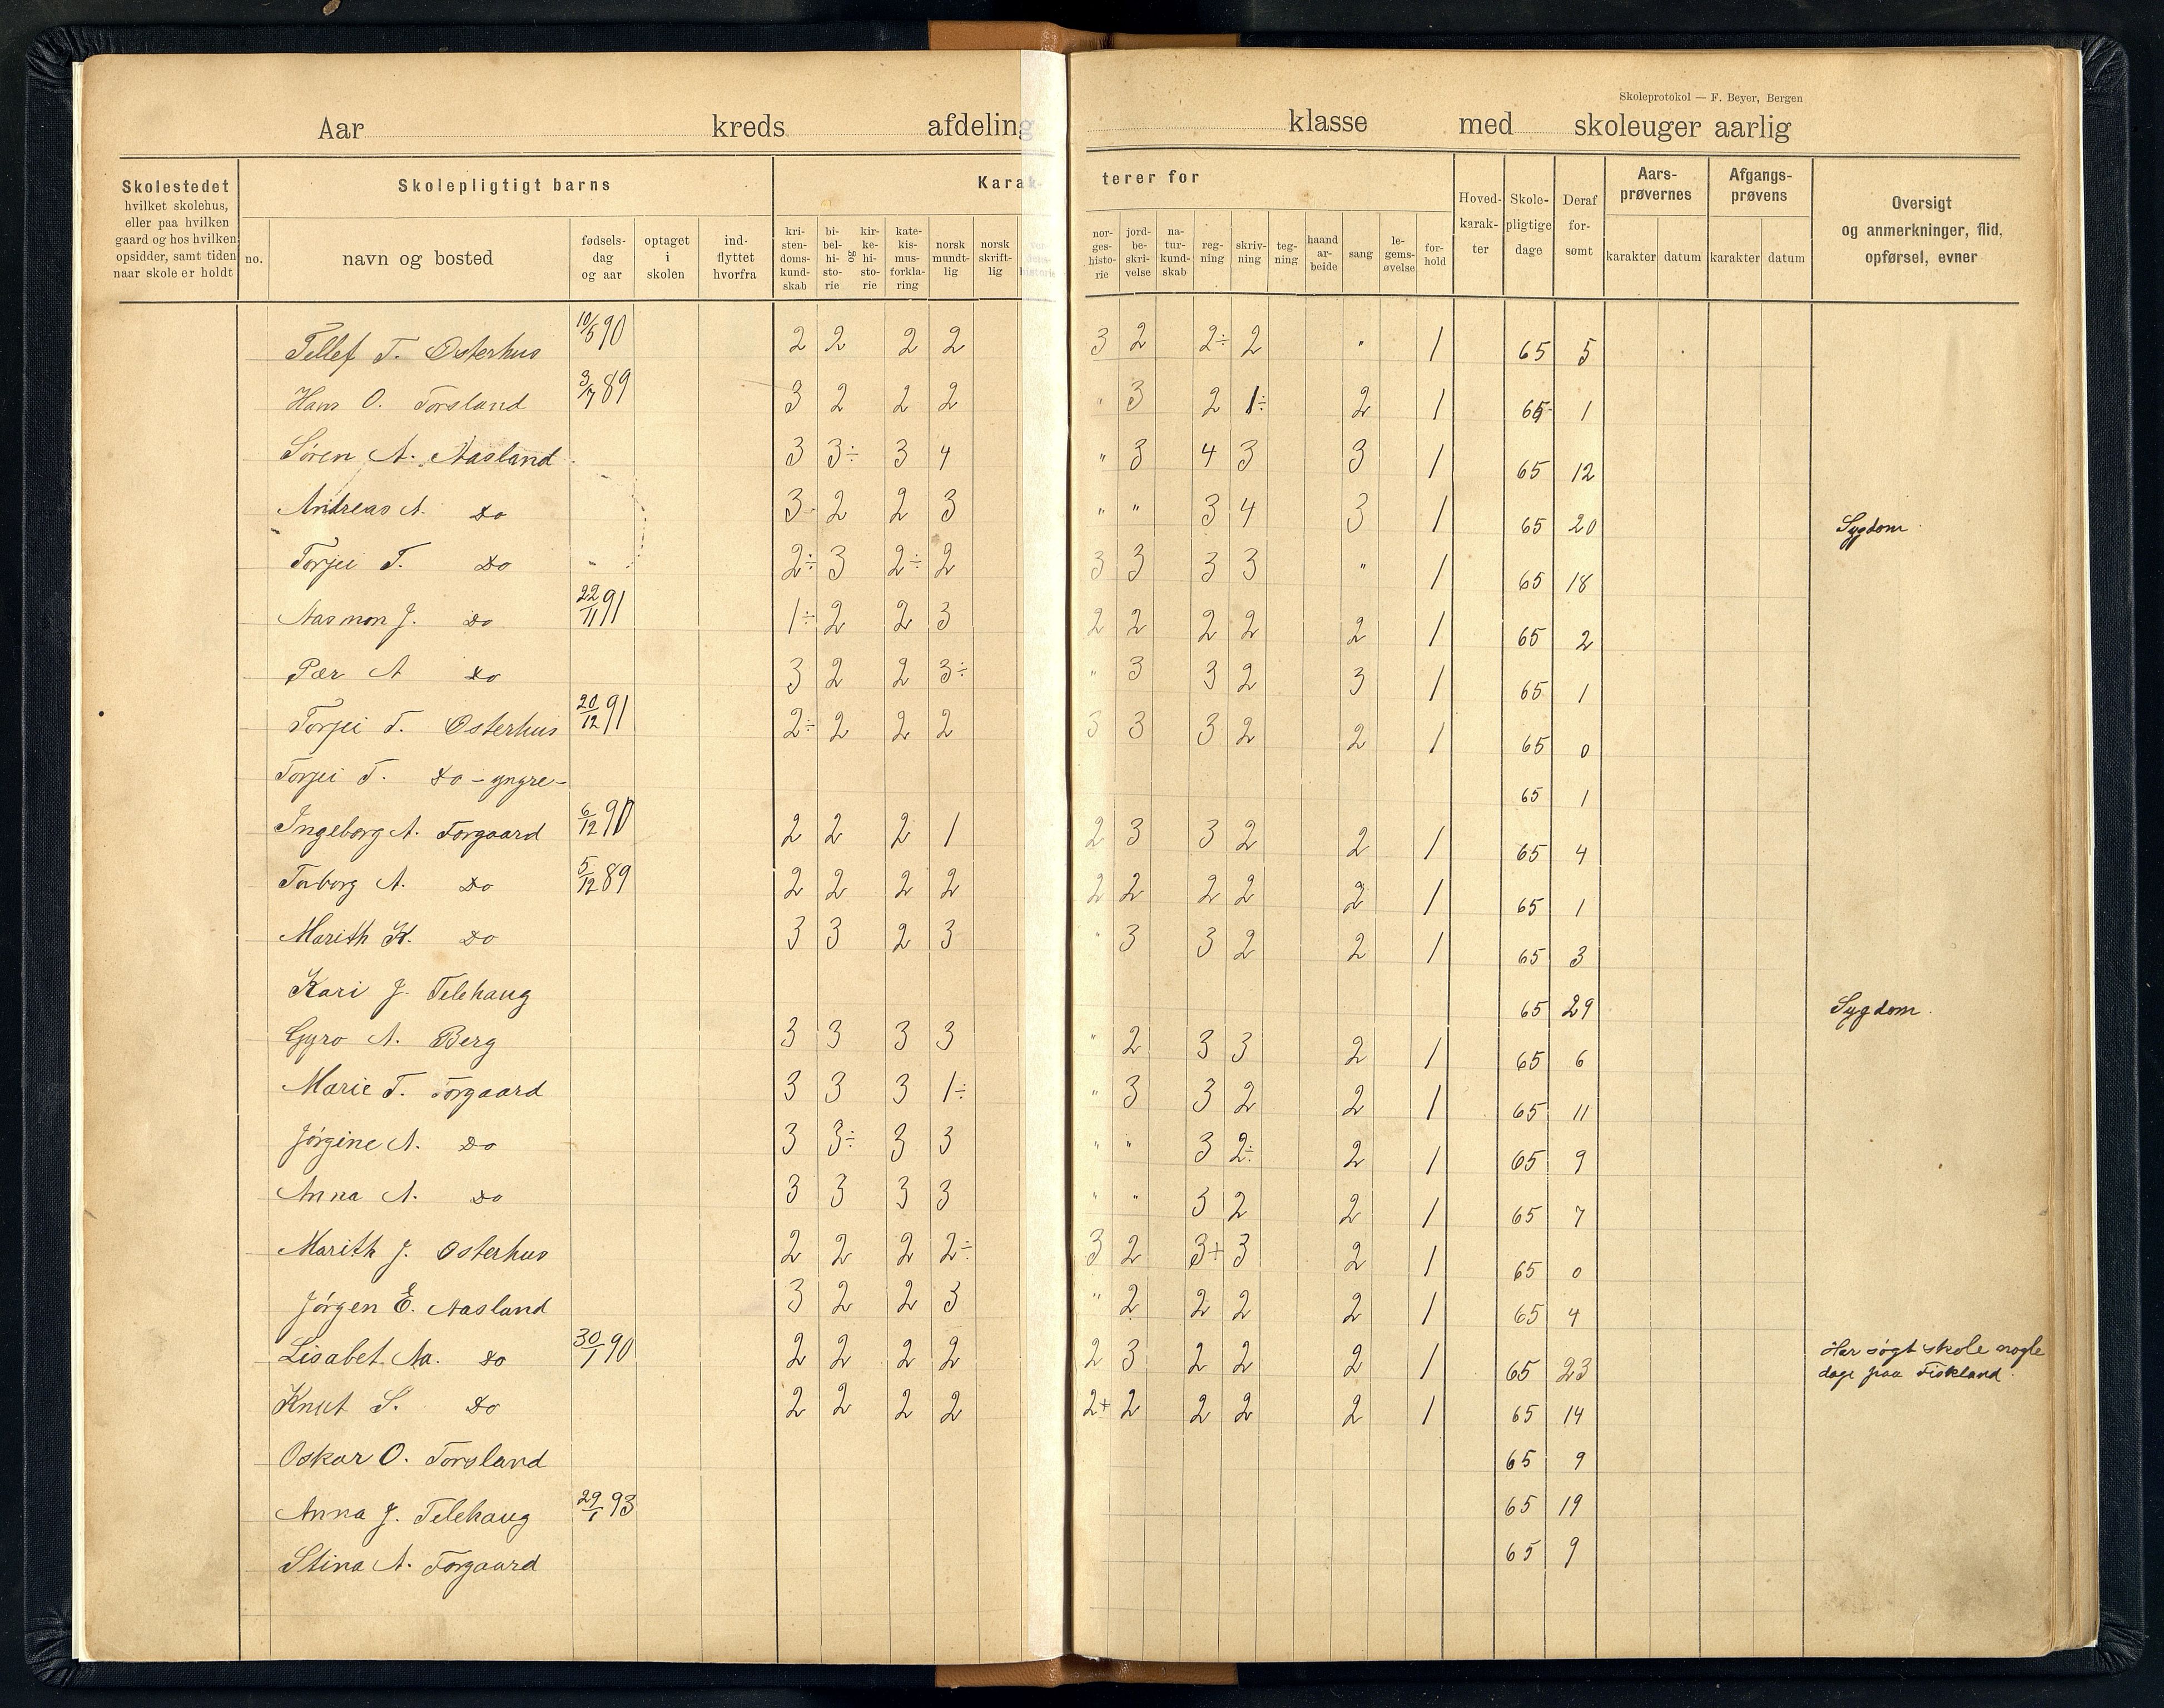 Skoleprotokol — F. Beyer, Bergen
Aar kreds afdeling klasse med skoleuger aarlig
Skolestedet
hvilket skolehus,
eller paa hvilken
gaard og hos hvilken
opsidder, samt tiden
naar skole er holdt
Skolepligtigt barns
no.
navn og bosted
fødsels-
dag
og aar
optaget
i
skolen
ind-
flyttet
hvorfra
Karak-
terer for
kri-
sten-
doms-
kund-
skab
bi-
bel-
hi-
sto-
rie
og
kir-
ke-
hi-
sto-
rie
kate-
kis-
mus-
forkla-
ring
norsk
mundt-
lig
norsk
skrift-
lig
nor-
ges-
histo-
rie
jord-
be-
skri-
velse
na-
tur-
kund-
skab
reg-
ning
skriv-
ning
teg-
ning
haand
ar-
beide
sang
le-
gems-
øvelse
for-
hold
Hoved-
karak-
ter
Skole-
pligtige
dage
Deraf
for-
sømt
Aars-
prøvernes
karakter datum
Afgangs-
prøvens
karakter datum
Oversigt
og anmerkninger, flid,
opførsel, evner
Tellef T. Osterhus 10/5 90 2 2 2 2 3 2 2÷ 2 " 1 65 5
Hans O. Torsland 3/7 89 3 2 2 2 " 3 2 1÷ 2 1 65 1
Søren A. Aasland 3 3÷ 3 4 " 3 4 3 3 1 65 12
Andreas A. Do 3 2 2 3 " " 3 4 3 1 65 20 Sygdom
Torjei T. Do " 2÷ 3 2÷ 2 3 3 3 3 " 1 65 18
Aasmon J. Do 22/11 91 1÷ 2 2 3 2 2 2 2 2 1 65 2
Pær A Do 3 2 2 3÷ " 3 3 2 3 1 65 1
Torjei T. Osterhus 20/12 91 2÷ 2 2 2 3 3 3 2 2 1 65 0
Torjei T. Do - yngre - 65 1
Ingeborg A. Forgaard 6/12 90 2 2 2 1 2 3 3 2 2 1 65 4
Torborg A. Do 5/12 89 2 2 2 2 2 2 2 2 2 1 65 1
Marith K. Do 3 3 2 3 " 3 3 2 2 1 65 3
Kari J. Telehaug 65 29 Sygdom
Gyro A. Berg 3 3 3 3 " 2 3 3 2 1 65 6
Marie T. Forgaard 3 3 3 1÷ " 3 3 2 2 1 65 11
Jørgine A. Do 3 3÷ 3 3 " " 3 2÷ 2 1 65 9
Anna A. Do 3 3 3 3 " " 3 2 2 1 65 7
Marith J. Osterhus 2 2 2 2÷ 3 2 3+ 3 2 1 65 0
Jørgen E. Aasland 3 2 2 3 " 2 2 2 2 1 65 4
Lisabet Aa. Do 30/1 90 2 2 2 2 2 3 2 2 2 1 65 23 Har søgt skole nogle
dage paa Fiskland.
Knut S. Do 2 2 2 2 2+ 2 2 2 2 1 65 14
Oskar O. Torsland 65 9
Anna J. Telehaug 29/1 93 65 19
Stina A. Forgaard 65 9